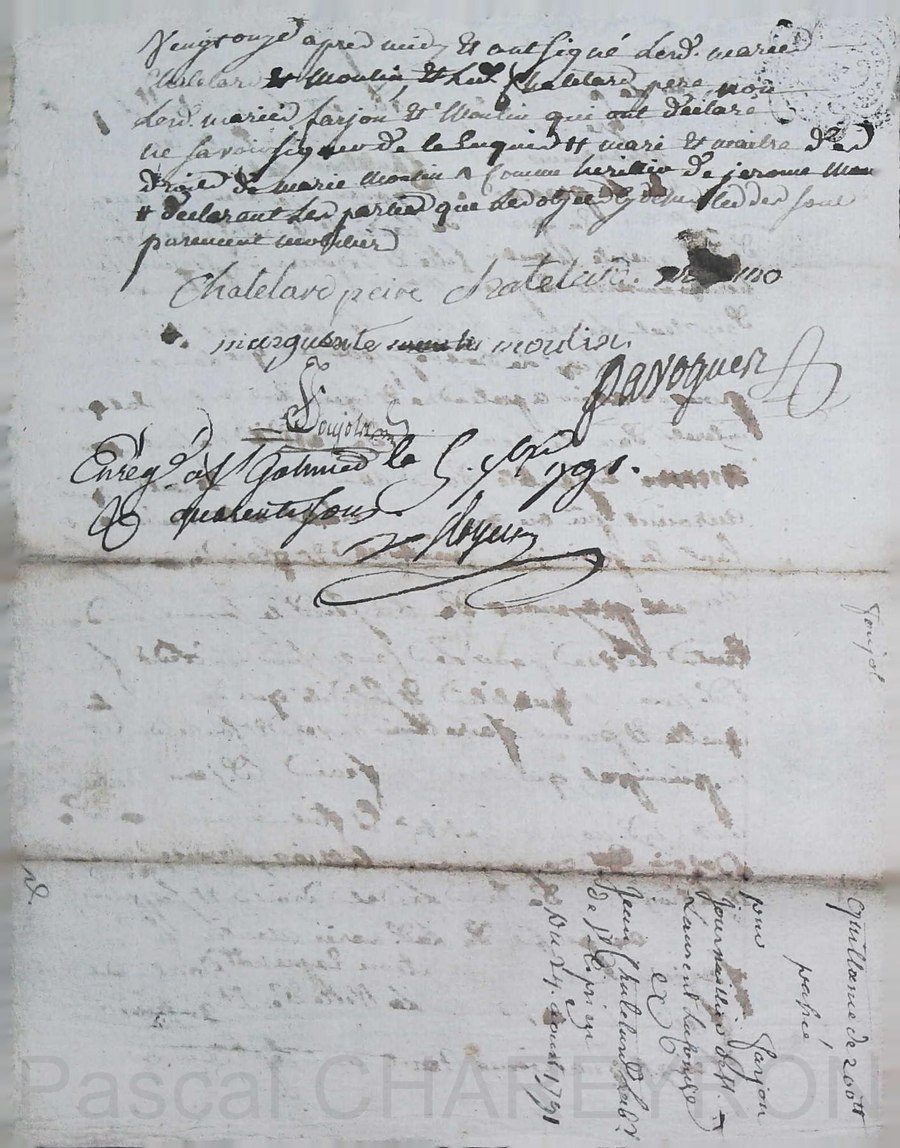 Vingt onze apres midy et ont signé lesd. mariés
Chatelard et Moulin et led. Chatelard pere, non
lesd. mariés farjon et Moulin qui ont declaré
ne savoir signer de le enquis et mari et maitre des
droits de marie Moulin & comme heritier de jerome Mou
declarant les parties que les objets sont
purement mobilier
Chatelard peire chatelard
marguerite moulin.
Pavoguer
Goujot
Enrég.é a St Galmier le 5. 7bre 1791.
quarente sous
Royer
Goujot
quittance de 200tt
passée,
par farjon
journallier de St
Laurent Laponche
a
Jean Chatelard lab.r
de St
Du 24 aout 1791
Pascal CHAPEYRON